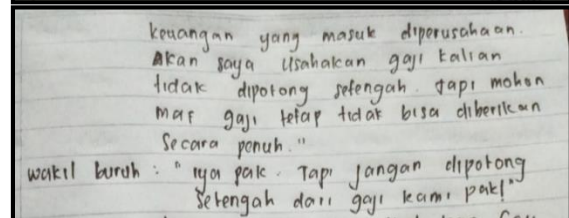 keuangan yang masuk diperusahaan.
Akan saya usahakan gaji kalian
tidak dipotong setengah. tapi mohon
maf gaji tetap tidak bisa diberikan
secara penuh."
wakil buruh : "iya pak. Tapi jangan dipotong
setengah dari gaji kami pak!"